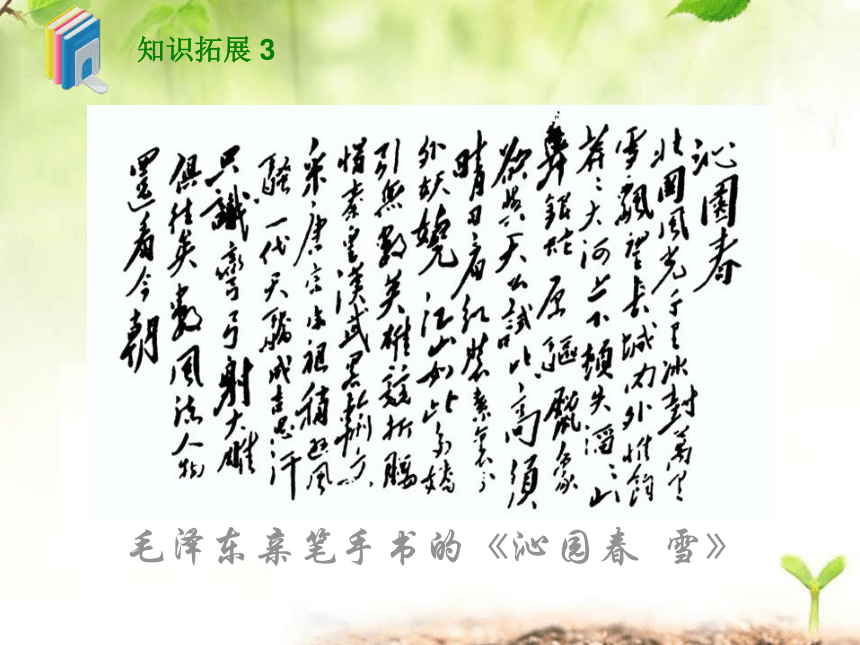 知识拓展 3
沁園春
北國風光千里冰封萬里
雪飄望長城内外惟餘
莽〻大河上下頓失滔〻山
舞銀蛇原驅臘象
欲與天公試比高須
晴日看紅裝素裹分
外妖嬈江山如此多嬌
引無數英雄競折腰
惜秦皇漢武略輸文
采唐宗宋祖稍遜風
騷一代天驕成吉思汗
只識彎弓射大雕
俱往矣數風流人物
還看今朝
毛泽东亲笔手书的《沁园春 雪》